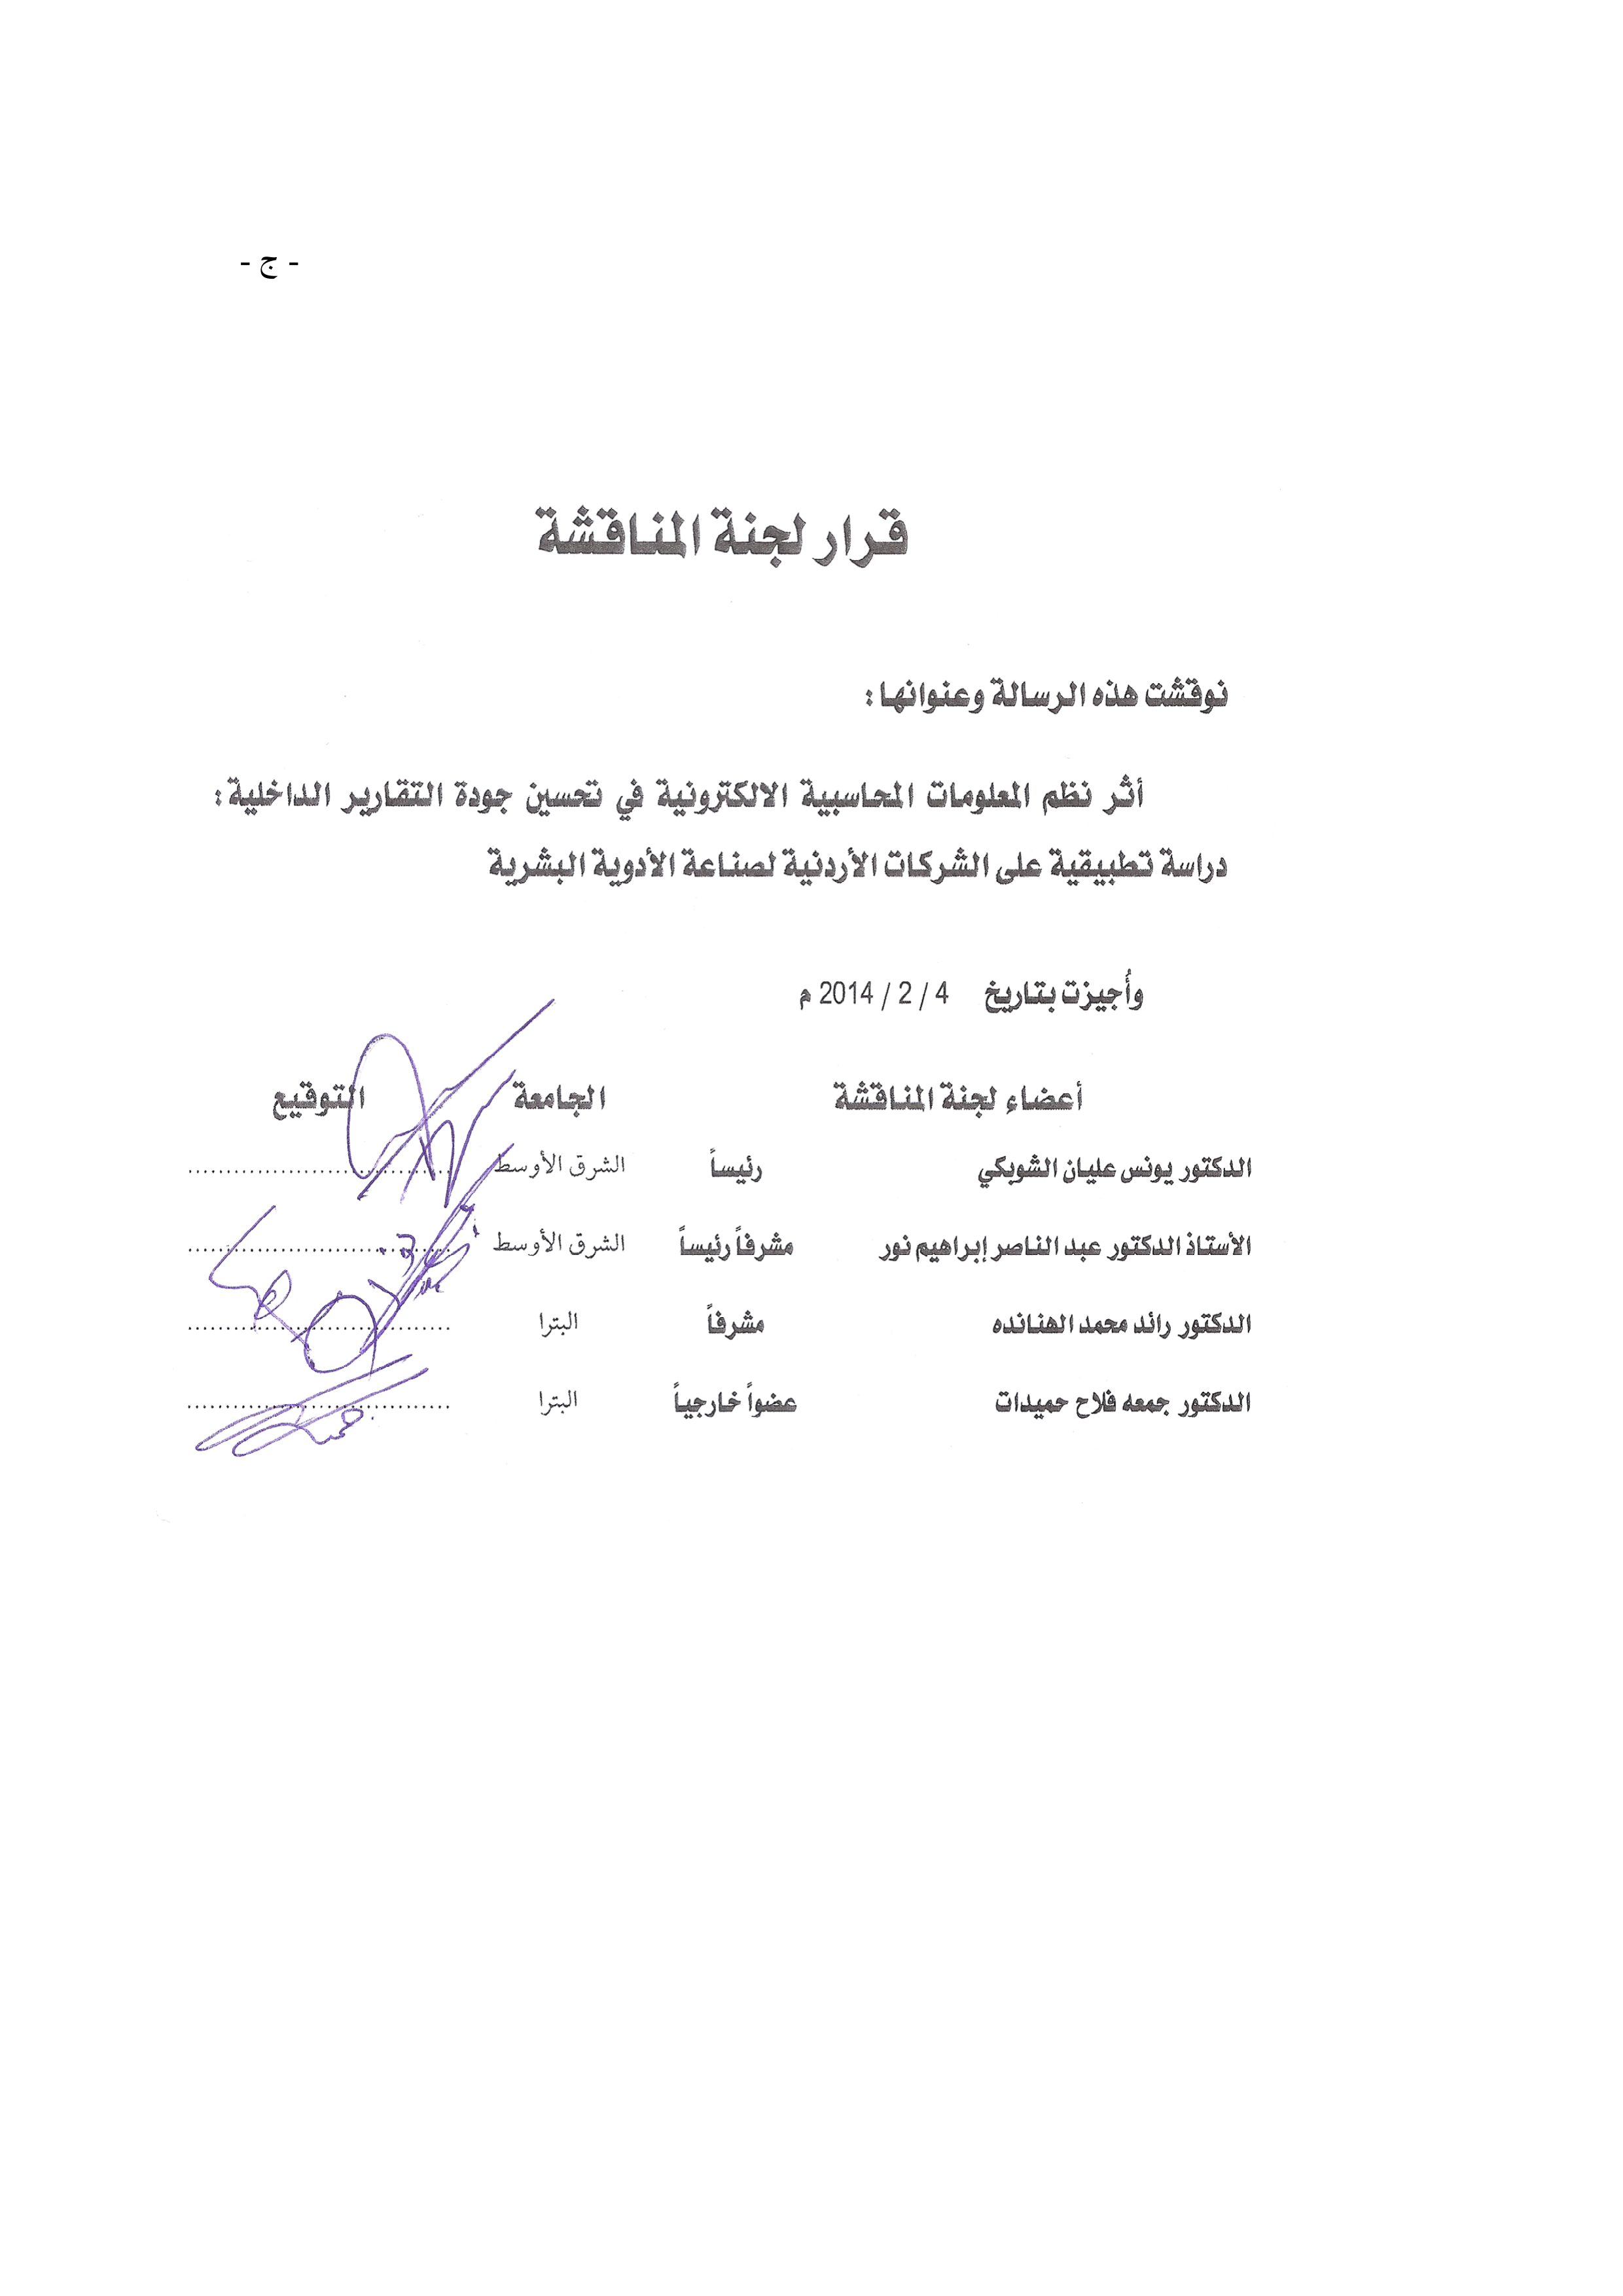 - ج -
قرار لجنة المناقشة
نوقشت هذه الرسالة وعنوانها :
أثر نظم المعلومات المحاسبية الالكترونية في تحسين جودة التقارير الداخلية :
دراسة تطبيقية على الشركات الأردنية لصناعة الأدوية البشرية
وأُجيزت بتاريخ 4 / 2 / 2014 م
أعضاء لجنة المناقشة الجامعة التوقيع
الدكتور يونس عليان الشوبكي رئيساً الشرق الأوسط ....................................
الأستاذ الدكتور عبد الناصر إبراهيم نور مشرفاً رئيساً الشرق الأوسط ....................................
الدكتور رائد محمد الهنانده مشرفاً البترا ....................................
الدكتور جمعه فلاح حميدات عضواً خارجياً البترا ....................................